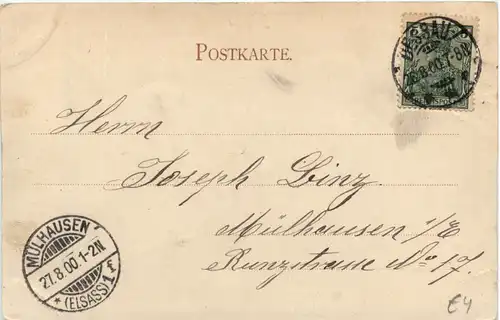 POSTKARTE.
DESSAU
26.8.00.7-8N
Herrn
Joseph Linz
Mülhausen i/E
Runzstrasse No 17.
MÜLHAUSEN
27.8.00.1-2N
* (ELSASS) 1 f
€4